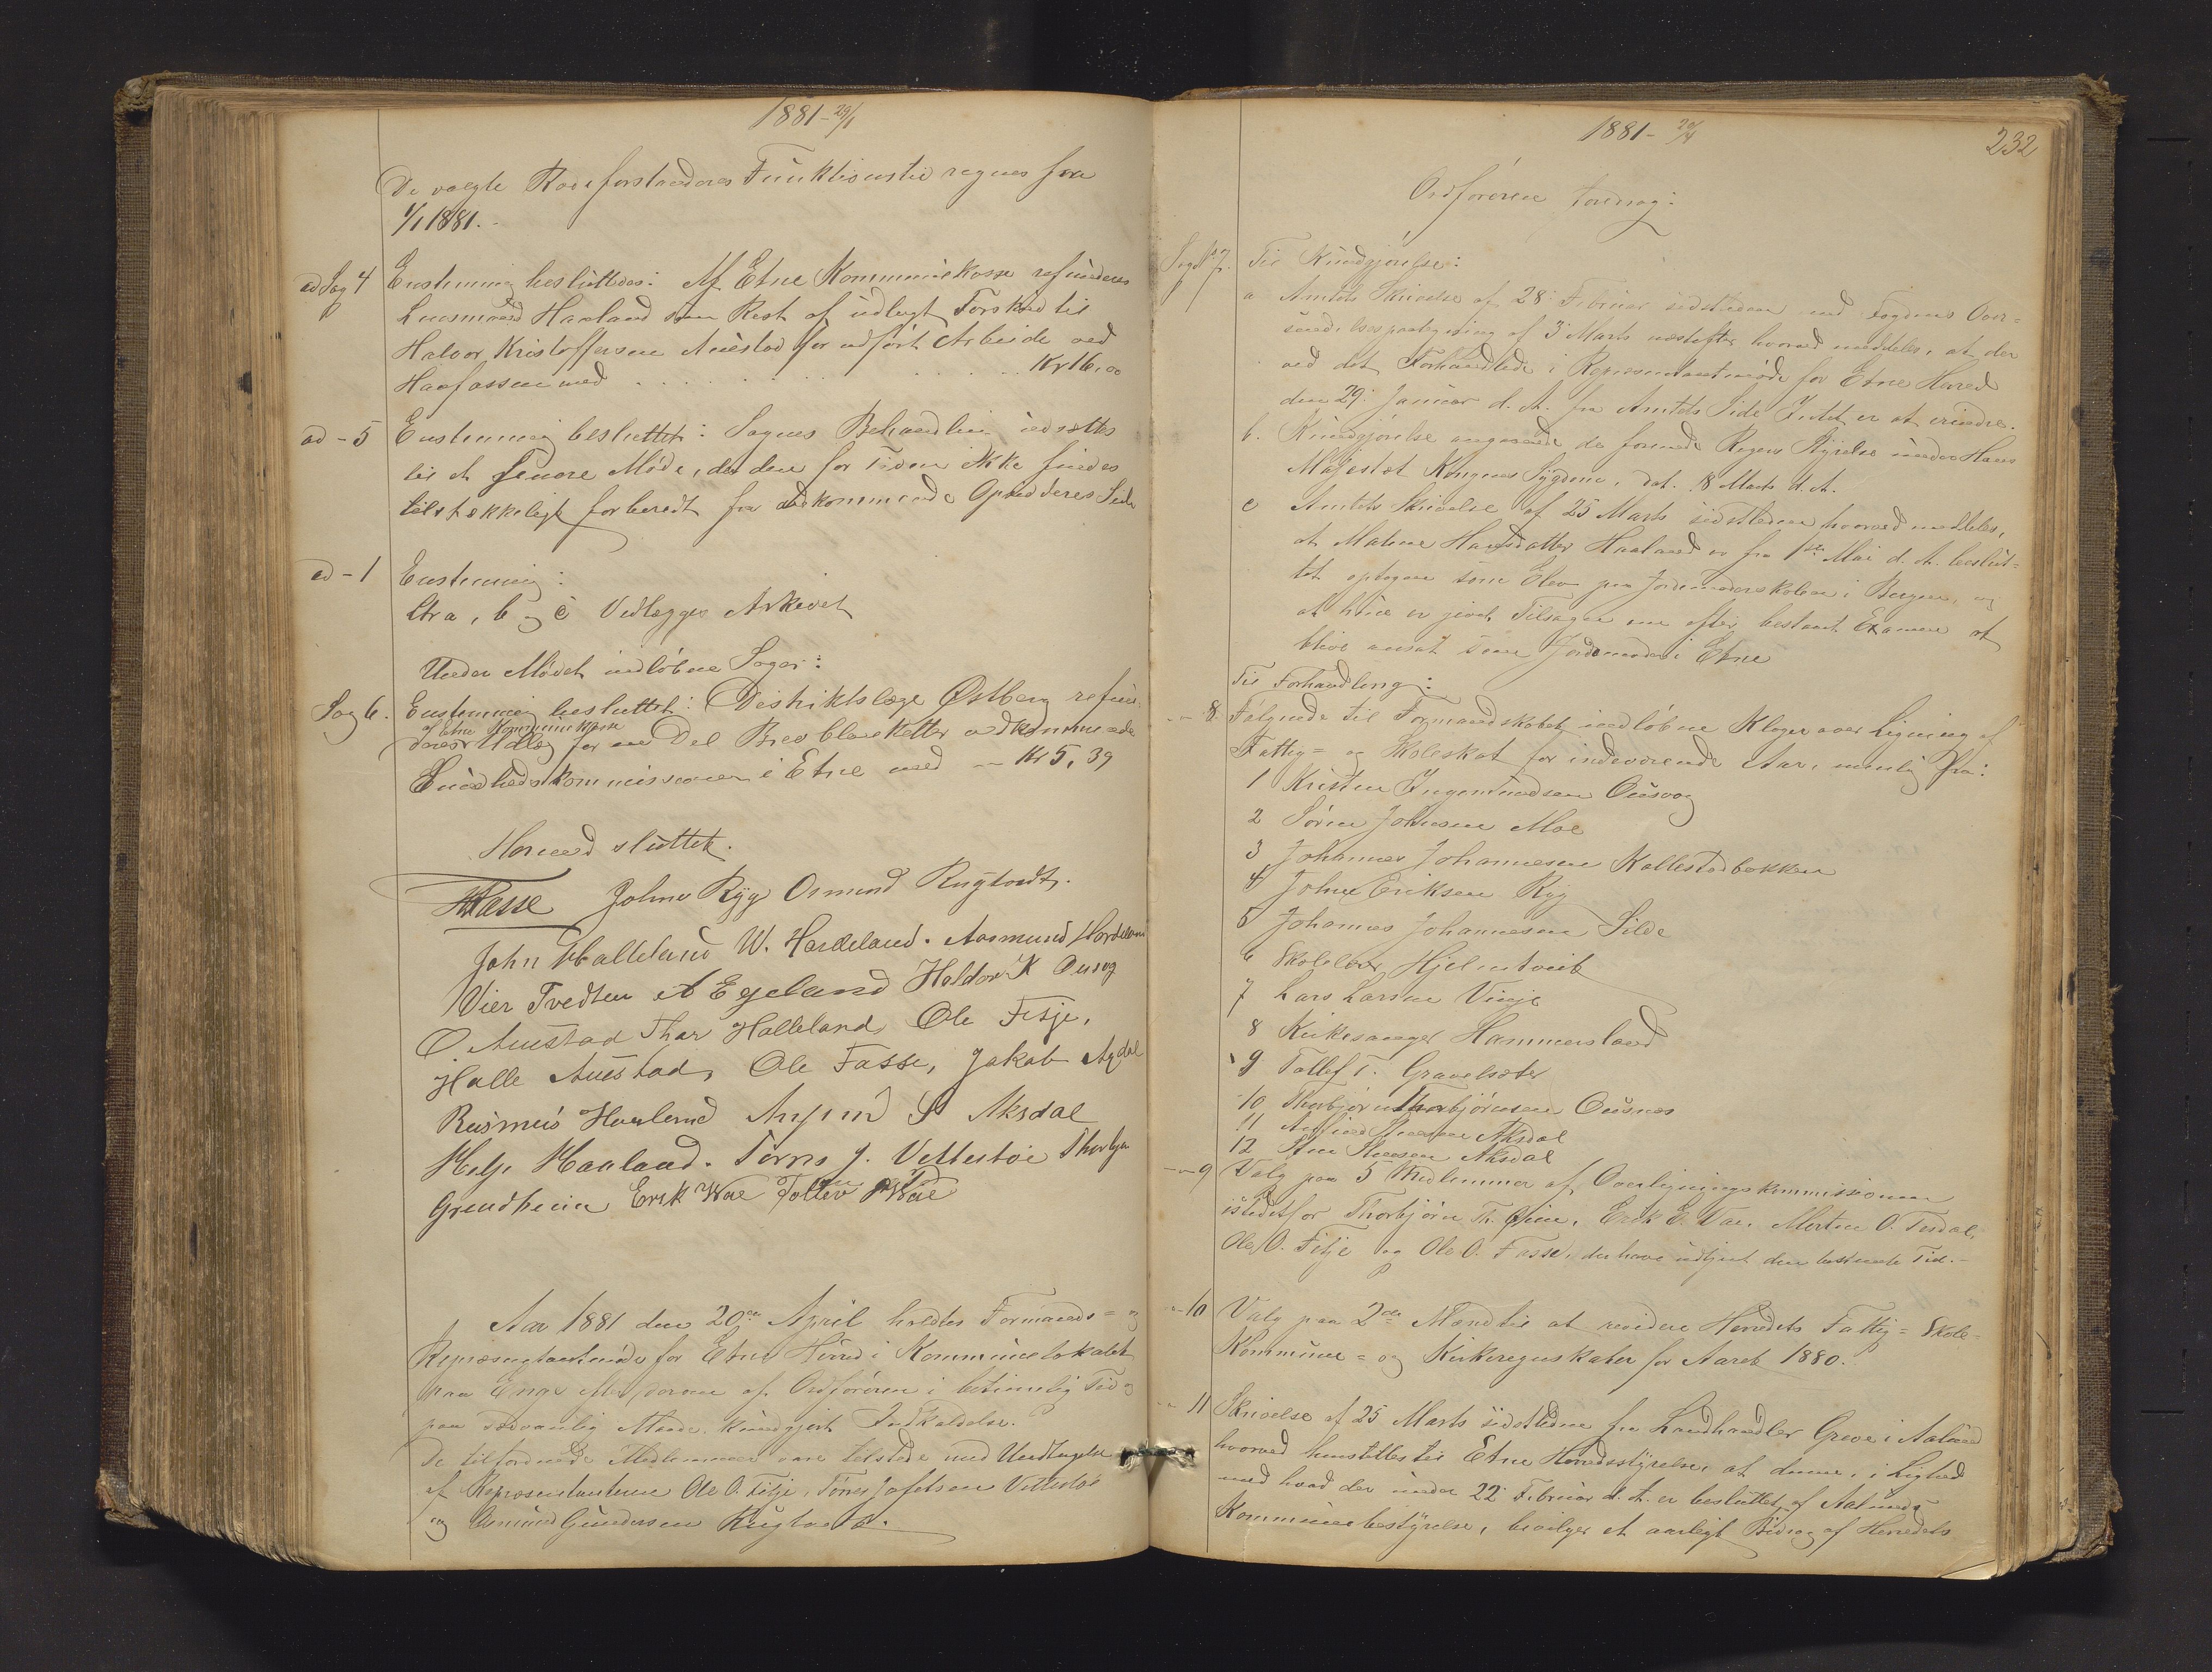 1881 - 29/1
De valgte Rodeforstanderes Funktionstid regnes fra
1/1 1881.
ad Sag 4 Enstemmig besluttedes: Af Etne Kommunekasse refunderes
Lensmand Haaland som Rest af udlagt Forskud til
Halvor Kristoffersen Austad for udført Arbeide ved
Haafassen med . . . . . . . . Kr 16,00
ad - 5 Enstemmig besluttet: Sagens Behandling udsættes
til et senere Møde, da den for Tiden ikke findes
tilstrækkeligt forberedt fra vedkommende Opsidderes Side
ad - 1 Enstemmig:
Ltr a, b og c Vedlægges Arkivet
Under Mødet indløbne Sager:
Sag 6. Enstemmig besluttet: Distriktslæge Østberg refun-
af Etne Kommunekasse
deres Udlæg for en Del Brevblanketter vedkommende
Sundhedskommissionen i Etne med - Kr 5,39
Hermed sluttet.
Fasse Johne Ryg Osmund Rugtvedt.
John Halleland W. Hardeland. Aasmund Hordeland
Vier Tvedten A Egeland Haldor K Ousvog
O. Austad Thar Halleland Ole Fitje,
Halle Austad, Ole Fasse, Jakob Agdal
Rasmus Haaland Anfind S Aksdal
Helje Haaland. Tørres J. Vettestøe Thorbjørn
Grindheim Erik Wae Tollev Wae
Aar 1881 den 20de April holdtes Formands= og
Repræsentantmøde for Etne Herred i Kommunelokalet
paa Enge efter forom af Ordføreren i betimelig Tid og
paa sædvanlig Maade kundgjort Indkaldelse.
De tilforordnede Medlemmer vare tilstede med Undtagelse
af Repræsentanterne Ole O. Fitje, Tørres Jafetsen Vettestøe
og Osmund Gundersen Rugtvedt.
1881 - 20/4
232
Ordføreren foredrog:
Sag No 7. Til Kundgjørelse:
a Amtets Skrivelse af 28 Februar sidstleden med Fogdens Over=
sendelsespaategning af 3 Marts næstefter hvorved meddeles, at der
ved det Forhandlede i Repræsentantmøde for Etne Herred
den 29 Januar d. A. fra Amtets Side Intet er at erindre.
b. Kundgjørelse angaaende de formede Rigens Styrelse under Hans
Majestæt Kongens Sygdom, dat. 8 Marts d. A.
c Amtets Skrivelse af 25 Marts sidstleden hvorved meddeles,
at Malene Hansdatter Haaland er fra 1ste Mai d. A. beslut=
tet optagen som Elev paa Jordemoderskolen i Bergen, og
at hun er givet Tilsagn om efter bestaaet Examen at
blive ansat som Jordemoder i Etne
Til Forhandling:
- " - 8. Følgende til Formandskabet indløbne Klager over Ligning af
Fattig= og Skoleskat for indeværende Aar, nemlig fra:
1 Kristen Ingemundsen Ousvog
2 Søren Johnsen Moe
3 Johannes Johannesen Kallestadbakken
4 John Eriksen Ryg
5 Johannes Johannesen Silde
6 Skolelærer Hjelmtveit
7 Lars Larsen Vinje
8 Kirkesanger Hammersland
9 Tollef T. Gravelsæter
10 Thorbjørn Thorbjørnsen Ousnes
11 Anfind Steensen Aksdal
12 Steensen Aksdal
- " - 9 Valg paa 5 Medlemmer af Overligningskommissionen
istedetfor Thorbjørn Th. Øien, Erik E. Vae, Morten O. Tesdal,
Ole O. Fitje og Ole O. Fasse, der have udtjent den bestemte Tid.-
- " - 10 Valg paa 2de Mænd til at revidere Herredets Fattig= Skole=
Kommune= og Kirkeregnskaber for Aaret 1880.
- " - 11 Skrivelse af 25 Marts sidstleden fra Landhandler Greve i Aalund
hvorved henstilles til Etne Herredsstyrelse, at denne, i Lighed
med hvad der under 22 Februar d. A. er besluttet af Aalunds
Kommunebestyrelse, bevilger et aarligt Bidrag af Herredets